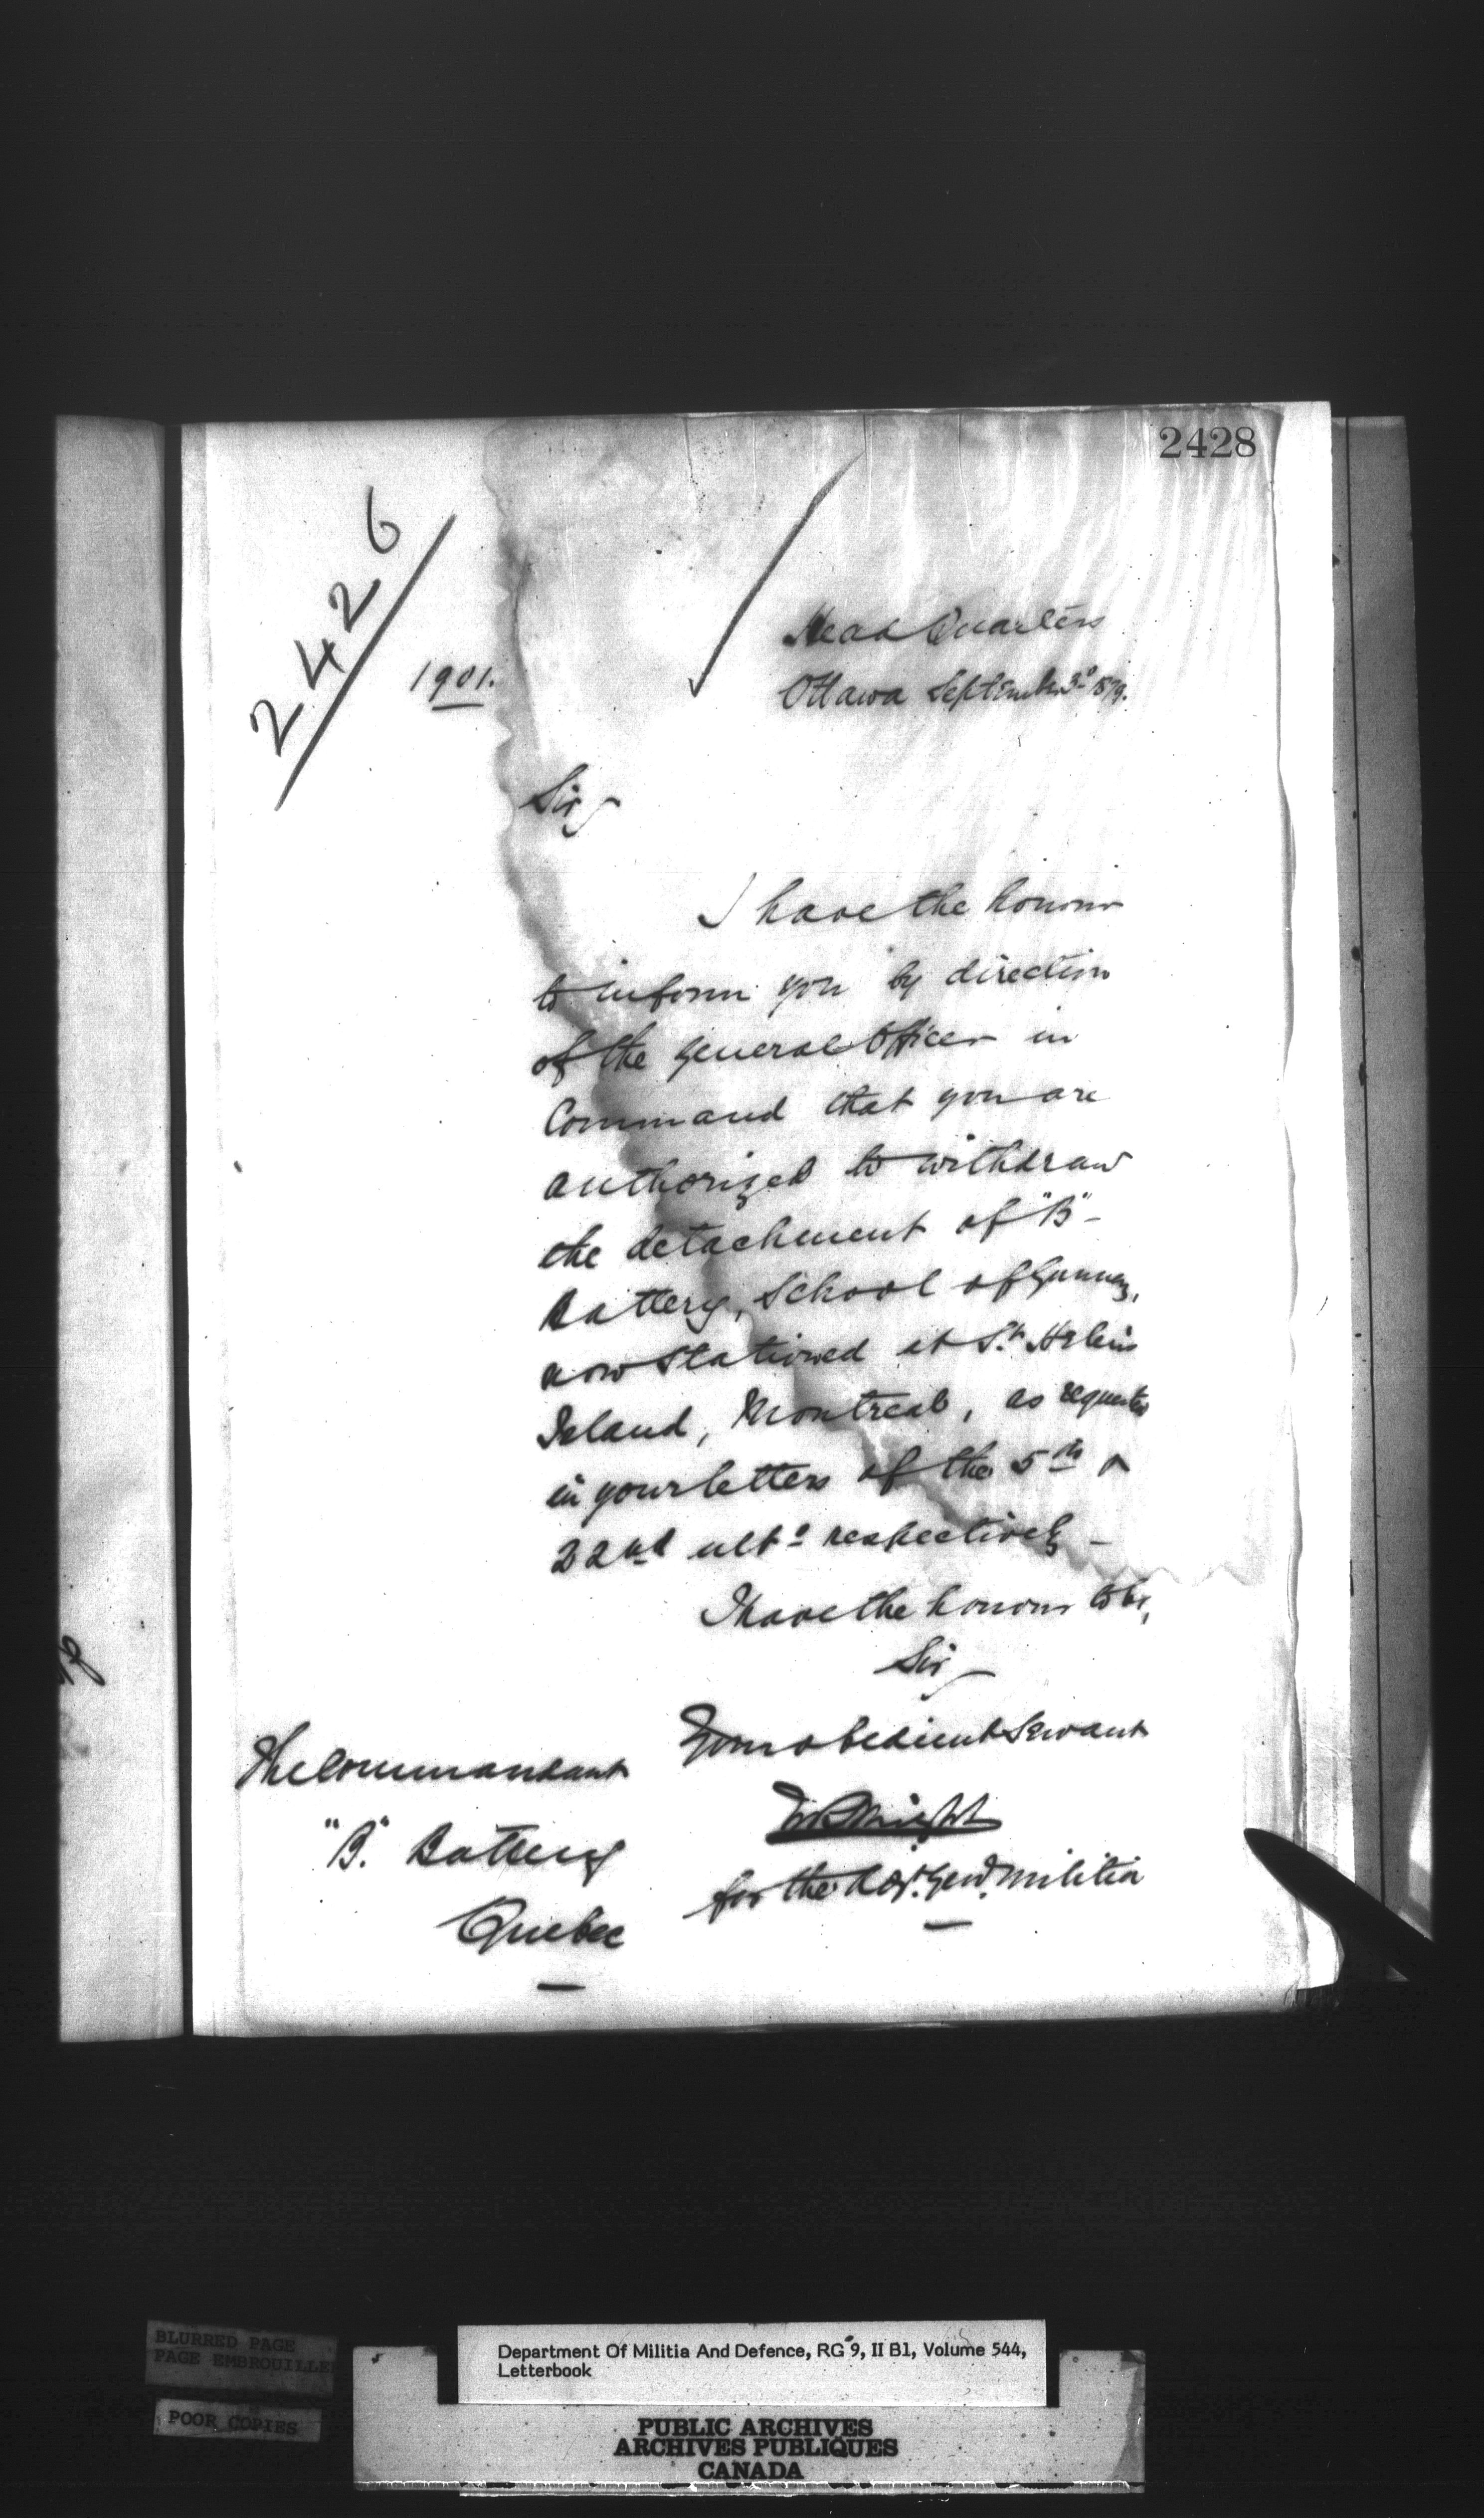 2428
2426
1901.
Head Quarters
Ottawa September 3d 1879.
Sir,
I have the honour
to inform you by direction
of the General Officer in
Command that you are
authorized to withdraw
the detachment of "B"-
Battery, School of Gunnery,
now stationed at St. Helen's
Island, Montreal, as requested
in your letters of the 5th &
22nd ulto respectively -
I have the honour to be,
Sir,
Your obedient Servant
for the Adjt. Genl. Militia
The Commandant
"B." Battery
Quebec
BLURRED PAGE
PAGE EMBROUILLEE
POOR COPIES
Department Of Militia And Defence, RG 9, II B1, Volume 544,
Letterbook
PUBLIC ARCHIVES
ARCHIVES PUBLIQUES
CANADA